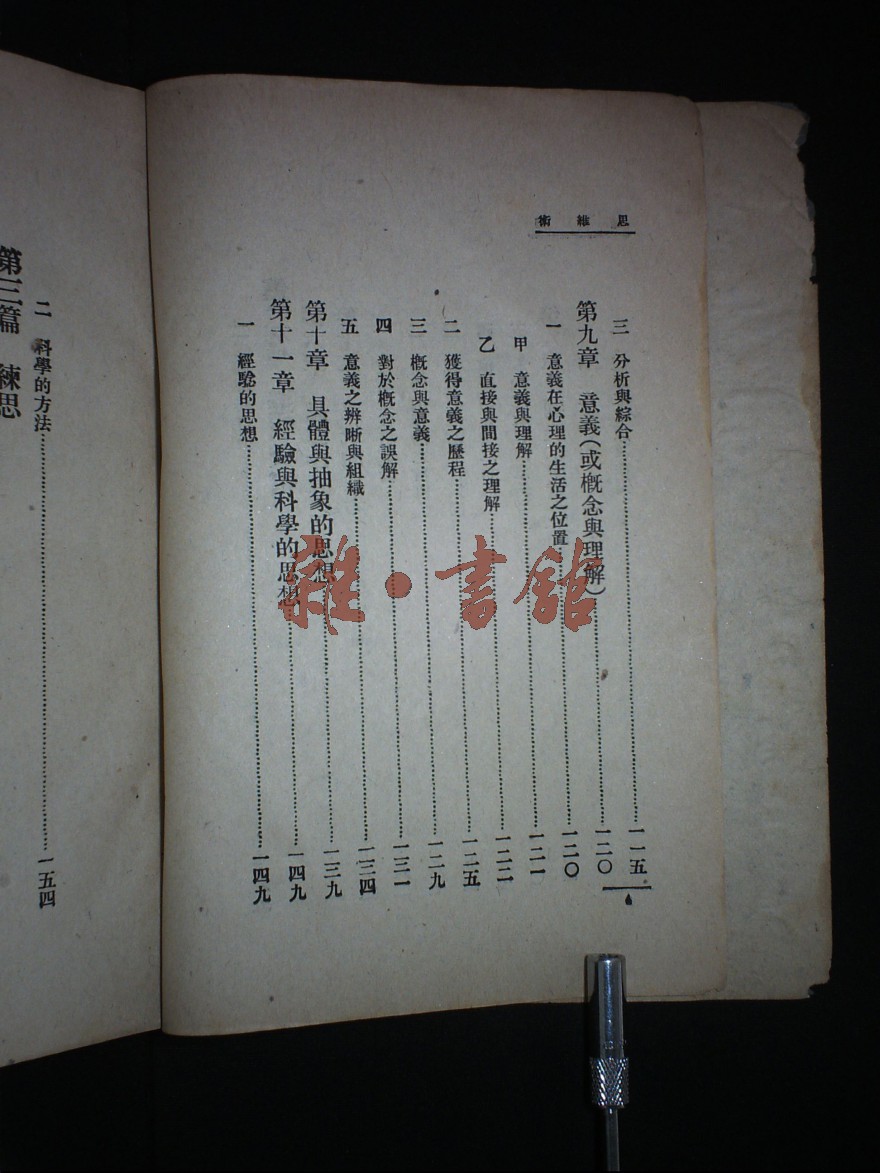 思維術
三　分析與綜合……一一五
第九章　意義（或概念與理解）……一二〇
一　意義在心理的生活之位置……一二〇
甲　意義與理解……一二一
乙　直接與間接之理解……一二二
二　獲得意義之歷程……一二五
三　概念與意義……一二九
四　對於概念之誤解……一三一
五　意義之辨晰與組織……一三四
第十章　具體與抽象的思想……一三九
第十一章　經驗與科學的思想……一四九
一　經驗的思想……一四九
二　科學的方法……一五四
第三篇　練思
雜·書館